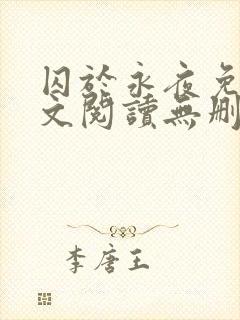 囚於永夜免
文閱讀無刪
李唐王